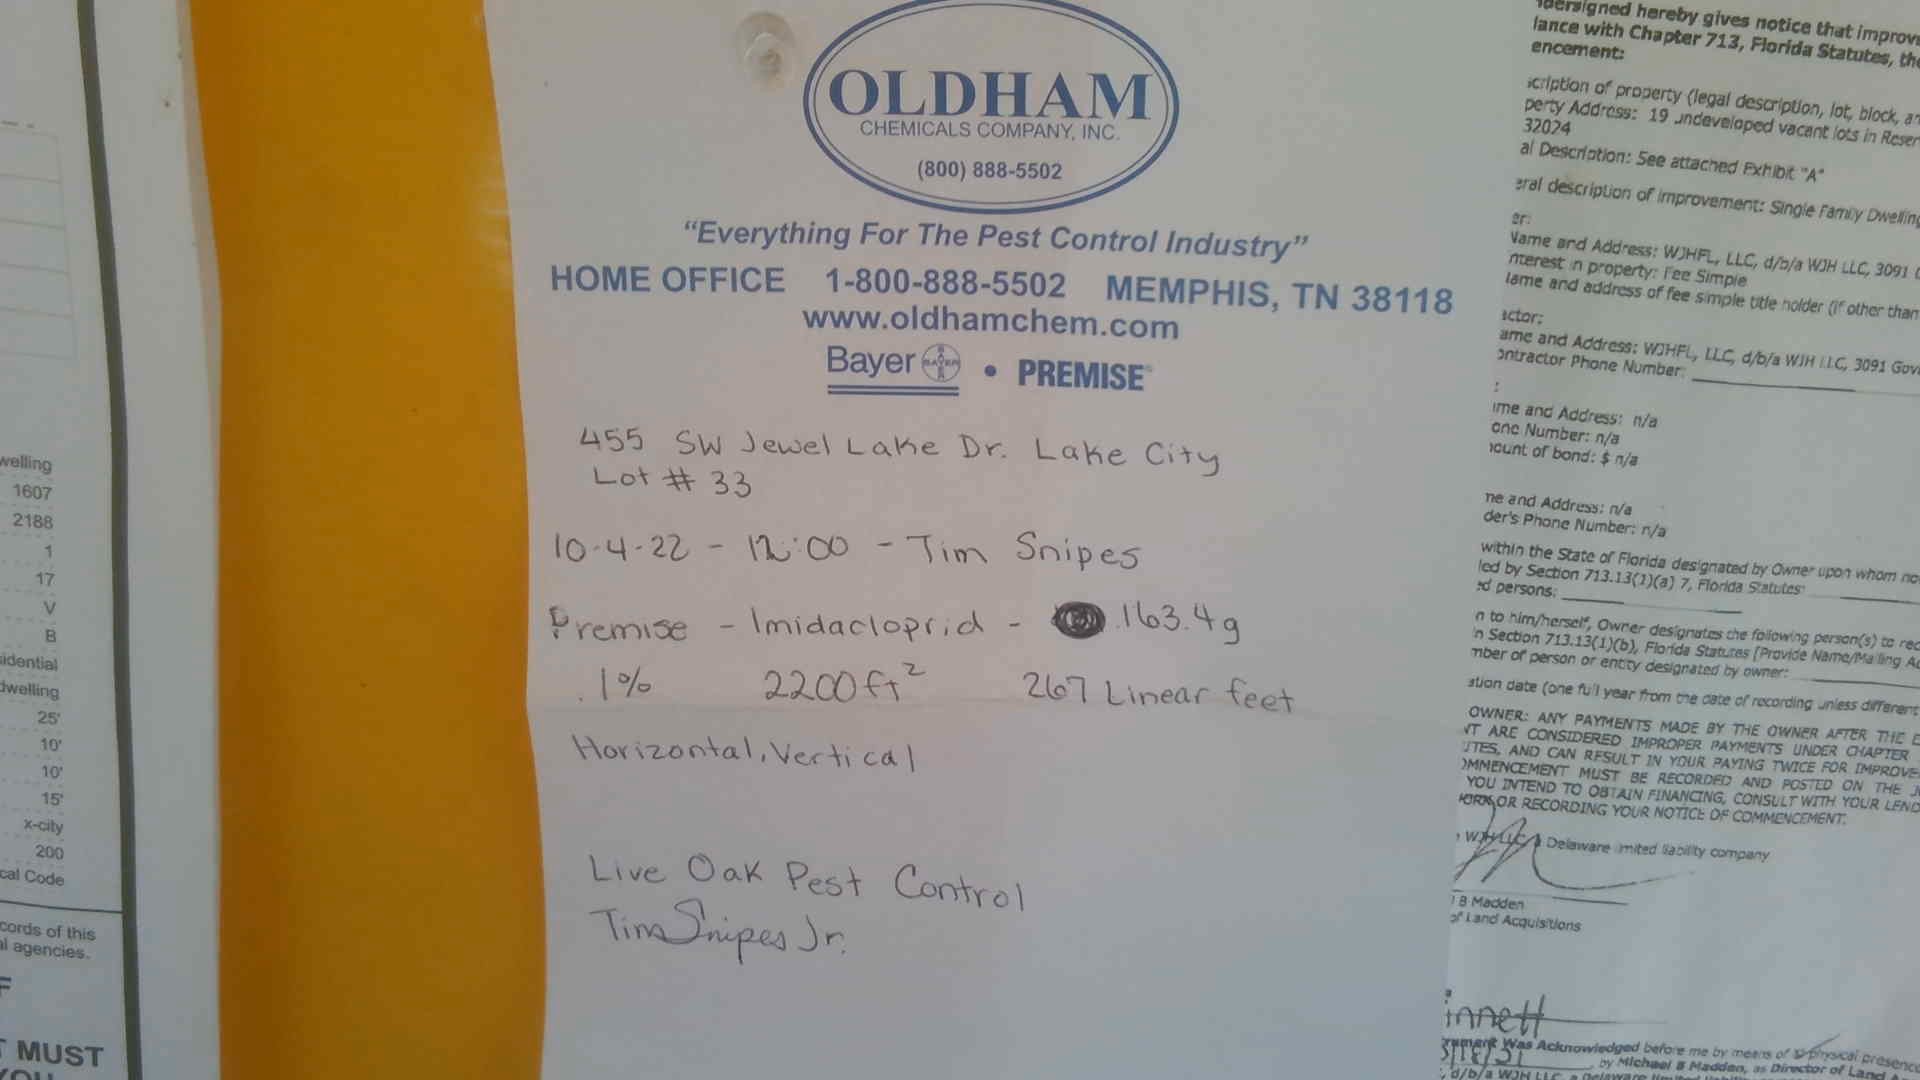 OLDHAM
CHEMICALS COMPANY, INC.
(800) 888-5502
"Everything For The Pest Control Industry"
HOME OFFICE 1-800-888-5502 MEMPHIS, TN 38118
www.oldhamchem.com
Bayer BAYER • PREMISE
455 SW Jewel Lake Dr. Lake City
Lot # 33
10-4-22 - 12:00 - Tim Snipes
Premise - Imidacloprid - 163.4g
.1% 2200ft² 267 Linear feet
Horizontal, Vertical
Live Oak Pest Control
Tim Snipes Jr.
welling
1607
2188
1
17
V
B
idential
dwelling
25'
10'
10'
15'
x-city
200
cal Code
cords of this
al agencies.
F
T MUST
dersigned hereby gives notice that improve
lance with Chapter 713, Florida Statutes, the
encement:
scription of property (legal description, lot, block, an
perty Address: 19 undeveloped vacant lots in Reser
32024
al Description: See attached Exhibit "A"
eral description of improvement: Single Family Dwelling
er:
Name and Address: WJHFL, LLC, d/b/a WJH LLC, 3091
nterest in property: Fee Simple
lame and address of fee simple title holder (if other than
actor:
ame and Address: WJHFL, LLC, d/b/a WJH LLC, 3091 Gov
ontractor Phone Number:
:
ime and Address: n/a
one Number: n/a
nount of bond: $ n/a
ne and Address: n/a
der's Phone Number: n/a
within the State of Florida designated by Owner upon whom no
led by Section 713.13(1)(a) 7, Florida Statutes:
ed persons:
n to him/herself, Owner designates the following person(s) to rec
in Section 713.13(1)(b), Florida Statutes [Provide Name/Mailing Ad
mber of person or entity designated by owner:
ation date (one full year from the date of recording unless different
OWNER: ANY PAYMENTS MADE BY THE OWNER AFTER THE E
NT ARE CONSIDERED IMPROPER PAYMENTS UNDER CHAPTER
UTES, AND CAN RESULT IN YOUR PAYING TWICE FOR IMPROVE
OMMENCEMENT MUST BE RECORDED AND POSTED ON THE J
YOU INTEND TO OBTAIN FINANCING, CONSULT WITH YOUR LEND
WORK OR RECORDING YOUR NOTICE OF COMMENCEMENT.
WJH LLC, a Delaware limited liability company
B Madden
of Land Acquisitions
innett
rument Was Acknowledged before me by means of physical presence
by Michael B Madden, as Director of Land A
d/b/a WJH LLC, a Delaware limited